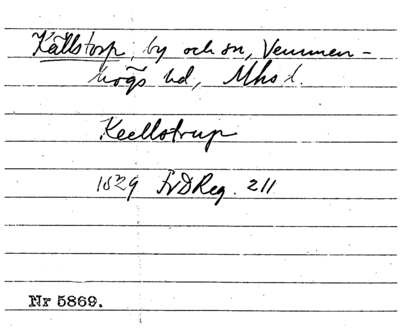 Källstorp, by och sn, Vemmen-
högs hd, Mhs l.
Keellstrup
1529 FrDReg. 211
Nr 5869.